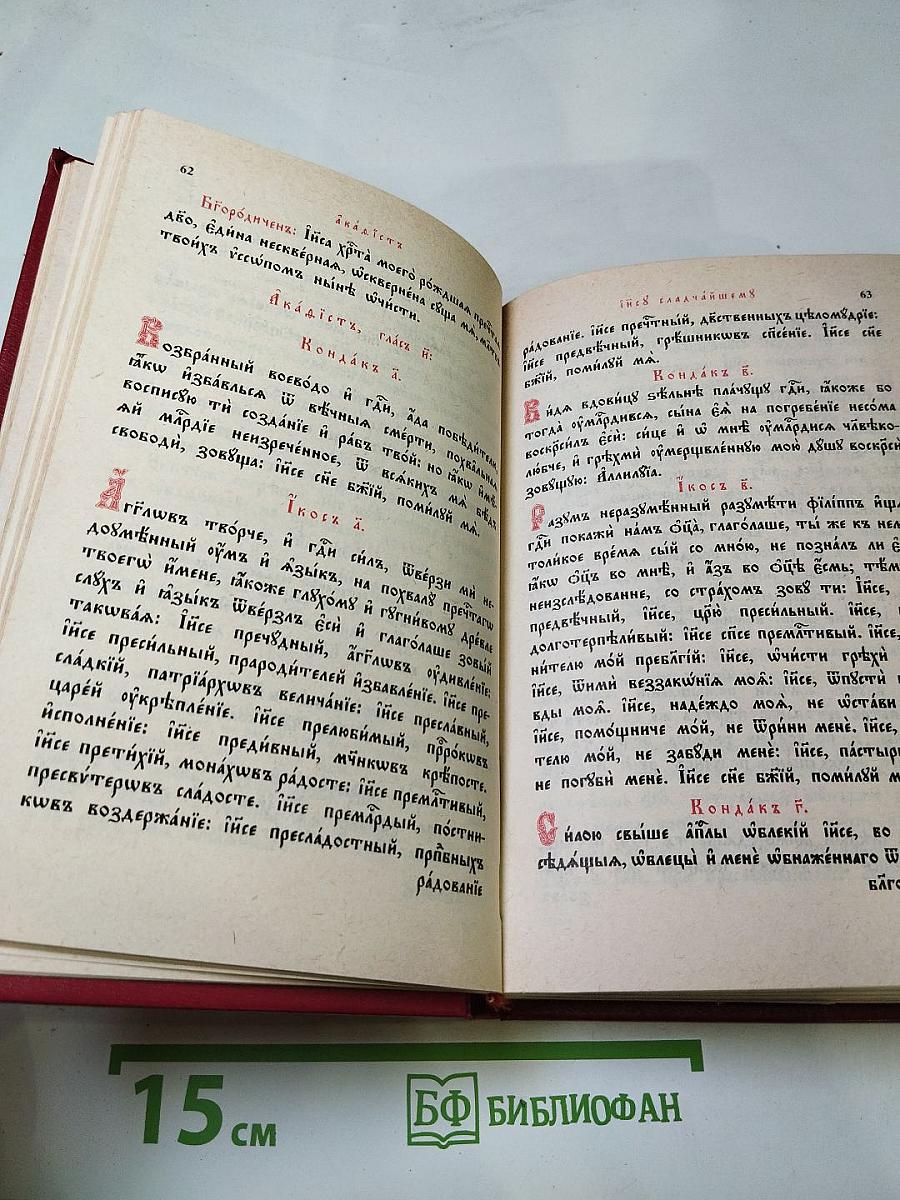 62
а҆ка́ѳїстъ
Бг҃оро́диченъ: І҆и҃са хрⷭ҇та̀ моего̀ ро́ждшаѧ
дв҃о, є҆ди́на нескве́рнаѧ, ѡ҆скверне́на сꙋ́ща мѧ̀,
твои́хъ ѵ҆ссѡ́помъ ны́нѣ ѡ҆чи́сти.
А҆ка́ѳїстъ, гла́съ и҃:
Конда́къ а҃.
Возбра́нный воево́до и҆ гдⷭ҇и, а҆́да побѣди́телю,
ꙗ҆́кѡ и҆зба́вльсѧ ѿ вѣ́чныѧ сме́рти, похва́льнаѧ
восписꙋ́ю тѝ созда́нїе и҆ ра́бъ тво́й: но ꙗ҆́кѡ и҆мѣ́ѧ
млⷭ҇рдїе неизрече́нное, ѿ всѧ́кихъ мѧ̀ бѣ́дъ
свободѝ, зовꙋ́ща: і҆и҃се сн҃е бж҃їй, поми́лꙋй мѧ̀.
І҆́косъ а҃.
А҆́гг҃лѡвъ тво́рче, и҆ гдⷭ҇и си́лъ, ѿве́рзи мѝ не-
доꙋмѣ́нный ᲂу҆́мъ и҆ ѧ҆зы́къ, на похвалꙋ̀ пречтⷭ҇агѡ
твоегѡ̀ и҆́мене, ꙗ҆́коже глꙋхо́мꙋ и҆ гꙋгни́вомꙋ дре́вле
слꙋ́хъ и҆ ꙗ҆зы́къ ѿве́рзлъ є҆сѝ и҆ глаго́лаше зовы́й
такѡва́ѧ: І҆и҃се пречꙋ́дный, а҆́гг҃лѡвъ ᲂу҆дивле́нїе:
і҆и҃се преси́льный, прароди́телей и҆збавле́нїе. і҆и҃се пре-
сла́дкїй, патрїа́рхѡвъ велича́нїе: і҆и҃се пресла́вный,
царе́й ᲂу҆крѣпле́нїе. і҆и҃се прелюби́мый, прⷪ҇ро́кѡвъ
и҆сполне́нїе: і҆и҃се преди́вный, мч҃нкѡвъ крѣ́посте.
і҆и҃се прети́хїй, мона́хѡвъ ра́досте: і҆и҃се премлⷭ҇тивый,
пресвѵ́терѡвъ сла́досте. і҆и҃се премлⷭ҇рдый, по́стни-
кѡвъ воздержа́нїе: і҆и҃се пресла́достный, прпⷣбныхъ
ра́дованїе
і҆и҃сꙋ сладча́йшемꙋ
63
ра́дованїе. і҆и҃се пречтⷭ҇ный, дв҃ственныхъ цѣломꙋ́дрїе:
і҆и҃се предвѣ́чный, грѣ́шникѡвъ сп҃се́нїе. І҆и҃се сн҃е
бж҃їй, поми́лꙋй мѧ̀.
Конда́къ в҃.
Ви́дѧ вдови́цꙋ ѕѣ́льнѣ пла́чꙋщꙋ гдⷭ҇и, ꙗ҆́коже бо
тогда̀ ᲂу҆млⷭ҇рдивсѧ, сы́на є҆ѧ̀ на погребе́нїе несо́ма
воскр҃си́лъ є҆сѝ: си́це и҆ ѡ҆ мнѣ̀ ᲂу҆млⷭ҇рдисѧ чл҃вѣко-
лю́бче, и҆ грѣхмѝ ᲂу҆мерщвле́ннꙋю мою̀ дꙋ́шꙋ
зовꙋ́щꙋю: А҆ллилꙋ́їа.
І҆́косъ в҃.
Ра́зꙋмъ неразꙋмѣ́нный разꙋмѣ́ти фїлі́ппъ
гдⷭ҇и покажѝ на́мъ ѻ҆ц҃а̀, глаго́лаше, ты́ же къ
толи́кое вре́мѧ сы́й со мно́ю, не позна́лъ ли
ꙗ҆́кѡ ѻ҆ц҃ъ во мнѣ̀, и҆ а҆́зъ во ѻ҆ц҃ѣ̀ є҆́смь;
неизслѣ́дованне, со стра́хомъ зовꙋ́ ти: І҆и҃се,
предвѣ́чный, і҆и҃се, цр҃ю̀ преси́льный. і҆и҃се,
долготерпѣли́вый: і҆и҃се сп҃се премлⷭ҇тивый. і҆и҃се,
ни́телю мо́й пребл҃гі́й: і҆и҃се, ѡ҆чи́сти грѣхѝ
і҆и҃се, ѿимѝ беззакѡ́нїѧ моѧ̑: і҆и҃се, ѿпꙋстѝ
вды моѧ̑. і҆и҃се, наде́ждо моѧ̀, не ѡ҆ста́ви
і҆и҃се, помо́щниче мо́й, не ѿри́ни менѐ. і҆и҃се,
телю мо́й, не забꙋ́ди менѐ: і҆и҃се,
не погꙋбѝ менѐ. І҆и҃се сн҃е бж҃їй, поми́лꙋй
Конда́къ г҃.
Си́лою свы́ше а҆пⷭ҇лы ѡ҆блекі́й і҆и҃се, во
сѣдѧ́щыѧ, ѡ҆блецы̀ и҆ менѐ ѡ҆бнаже́ннаго
15 см
БФ БИБЛИОФАН